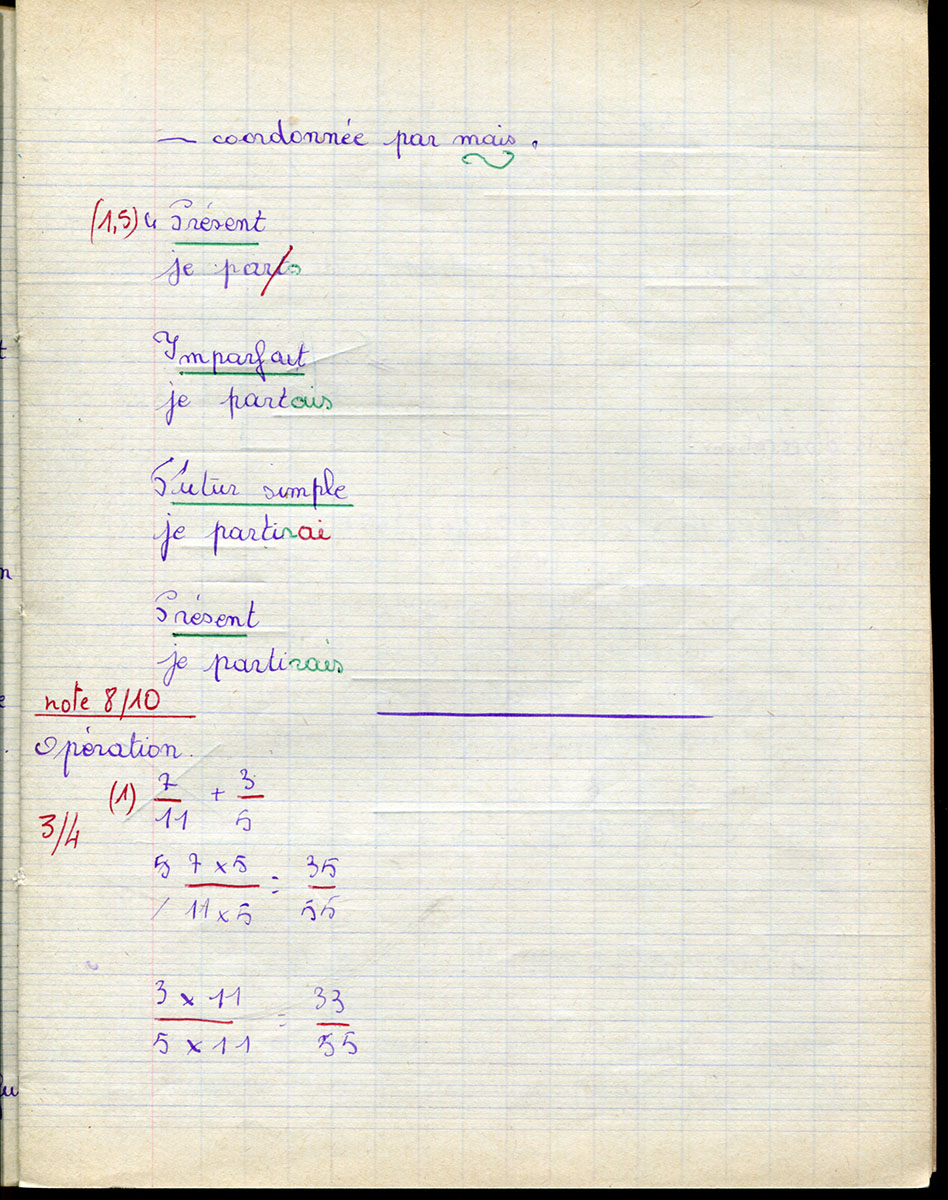 — coordonnée par mais.
(1,5) 4 Présent
je parts
Imparfait
je partais
Futur simple
je partirai
Présent
je partirais
note 8/10
Opération.
(1) 7/11 + 3/5
3/4
5 7 x 5 / 11 x 5 = 35/55
3 x 11 / 5 x 11 = 33/55